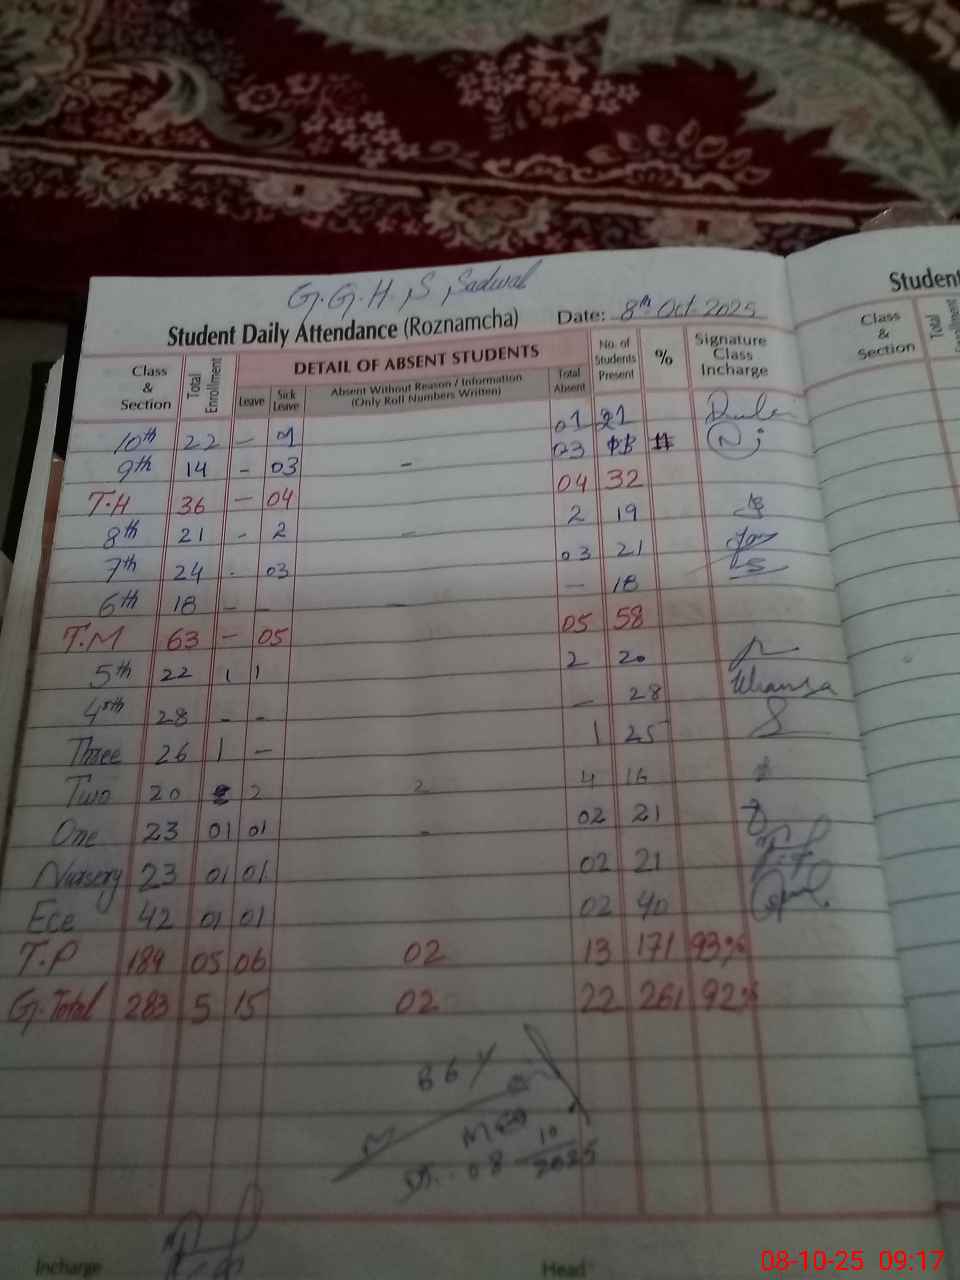 G.G.H.S, Sadwal
Student Daily Attendance (Roznamcha) Date: 8th Oct 2025
Class & Section Total Enrollment DETAIL OF ABSENT STUDENTS No. of Students Present % Signature Class Incharge
Leave Sick Leave Absent Without Reason / Information (Only Roll Numbers Written) Total Absent
10th 22 - 01 01 21
9th 14 - 03 - 03
T.H 36 - 04 04 32
8th 21 - 2 - 2 19
7th 24 - 03 03 21
6th 18 - - - - 18
T.M 63 - 05 05 58
5th 22 1 1 2 20
4th 28 - - - 28
Three 26 1 - 1 25
Two 20 2 2 4 16
One 23 01 01 - 02 21
Nursery 23 01 01 02 21
Ece 42 01 01 02 40
T.P 184 05 06 02 13 171 93%
G.Total 283 5 15 02 22 261 92%
08 10 2025
Incharge Head
Student
Class & Section Total Enrollment
08-10-25 09:17